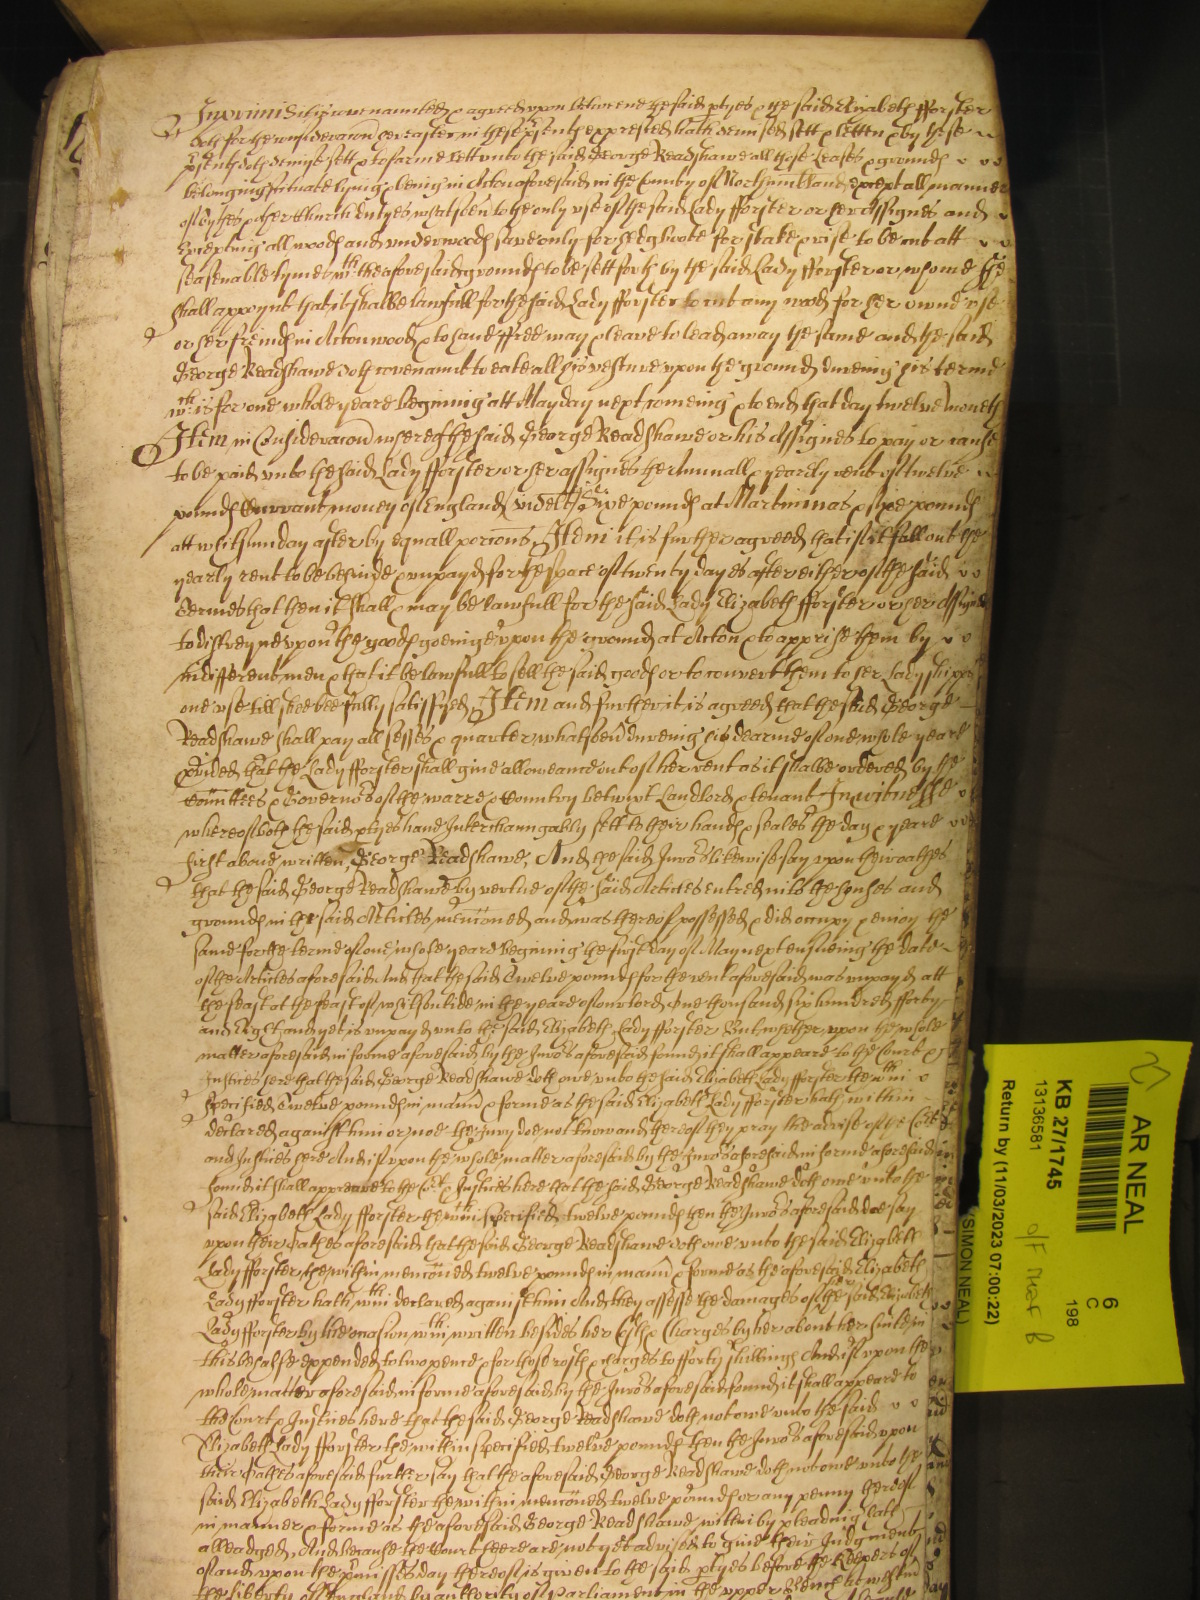 Imprimis it is covenanted & agreed upon betweene the said ptyes & the said Elizabeth Lady fforster
doth for the consideracon hereafter in these psents expressed hath demised sett & letten & by these
psents doth demyse sett & to farme lett unto the said George Readshawe all those Leases & grounds
belonging scituate lying & being in Acton aforesaid in the County of Northumbland except all manner
of tythes & other Church dutyes whatsoever to the only use of the said Lady fforster or her Assignes and
Excepting all woods and underwoods save only for hedgboote for stake & rise to be cut att
seasenable tymes wth the aforesaid grounds to be sett forth by the said Lady fforster or whome she
shall appoynt that it shalbe lawfull for the said Lady fforster to cut any wood for her owne use
or her freinds in Acton wood & to have ffree way & leave to lead away the same and the said
George Readshawe doth covenant to eate all his vesture upon the grounds dureing his terme
wch is for one whole yeare begining att Mayday next comeing & to end that day twelve moneth
Item in Consideracon whereof the said George Readshawe or his Assignes to pay or cause
to be paid unto the said Lady fforster or her assignes the Annuall & yearly rent of twelve
pounds Currant money of England (videlt) Sixe pounds at Martinmas & sixe pounds
att whitsunday after by equall porcons, Item it is further agreed that if it fall out the
yearly rent to be behinde & unpayd for the space of twenty dayes after either of the said
Termes that then it shall & may be lawfull for the said Lady Elizabeth fforster or her Assignes
to distreyne upon the goods goeinge upon the grounds at Acton & to apprise them by
indifferent men & that it be lawfull to sell the said goods or to convert them to her Ladyshipps
one use till shee bee fully satisfyed, Item and further it is agreed that the said George
Readshawe shall pay all sesses & quarter whatsoevr dureing his tearme of one whole yeare
pvided that the Lady fforster shall give allowance out of her rent as it shalbe ordered by the
Comittees & Governors of the warre & Country betwixt Landlord & tenant In witnesse
whereof both the said ptyes have Interchaungably sett to their hands & seales the day & yeare
first above written, George Readshawe, And the said Jurors likewise say upon their oathes
that the said George Readshawe by vertue of the said Articles entred into the houses and
grounds in the said Articles menconed and was thereof possessed & did occupy & enioy the
same for the terme of one whole yeare begining the first day of May next ensueing the date
of the Articles aforesaid And that the said Twelve pounds for the rent aforesaid was unpayd att
the feast at the feast of whitsontide in the yeare of our lord One thousand six hundred fforty
and Eight and yet is unpayd unto the said Elizabeth Lady fforster, But whether upon the whole
matter aforesaid in forme aforesaid by the Jurors aforesaid found it shall appeare to the Court &
Justices here that the said George Readshawe doth owe unto the said Elizabeth Lady fforster the wthin
specified Twelve pounds in mann & forme as the said Elizabeth Lady fforster hath within
declared against him or noe the Jury doe not know and thereof they pray the advise of the Cort
and Justices here And if upon the whole matter aforesaid by the Jurors aforesaid in forme aforesaid
found it shall appeare to the Cort & Justices here that the said George Readshawe doth owe unto the
said Elizabeth Lady fforster the wthin specified twelve pounds then the Jurors aforesaid doe say
upon their oathes aforesaid that the said George Readshawe doth owe unto the said Elizabeth
Lady fforster the within menconed twelve pounds in mann & forme as the aforesaid Elizabeth
Lady fforster hath wthin declared against him And they assesse the damages of the said Elizabeth
Lady fforster by the occasion wthin written besides her Costs & Charges by her about her suite in
this behalfe expended to two pence & for those costs & charges to fforty shillings And if upon the
whole matter aforesaid in forme aforesaid by the Jurors aforesaid found it shall appeare to
the Court & Justices here that the said George Readshawe doth not owe unto the said
Elizabeth Lady fforster the within specified twelve pounds then the Jurors aforesaid upon
their Oathes aforesaid further say that the aforesaid George Readshawe doth not owe unto the
said Elizabeth Lady fforster the within menconed twelve pounds or any penny thereof
in manner & forme as the aforesaid George Readshawe within by pleading hath
alleadged, And because the Court here are not yet advised to give their Judgment
of and upon the pmisses day thereof is given to the said ptyes before the Keepers of
the liberty of England by authority of Parliament in the upper Bench
AR NEAL
KB 27/1745
13136581
Return by (11/03/2023 07:00:22)
(SIMON NEAL)
6
C
198